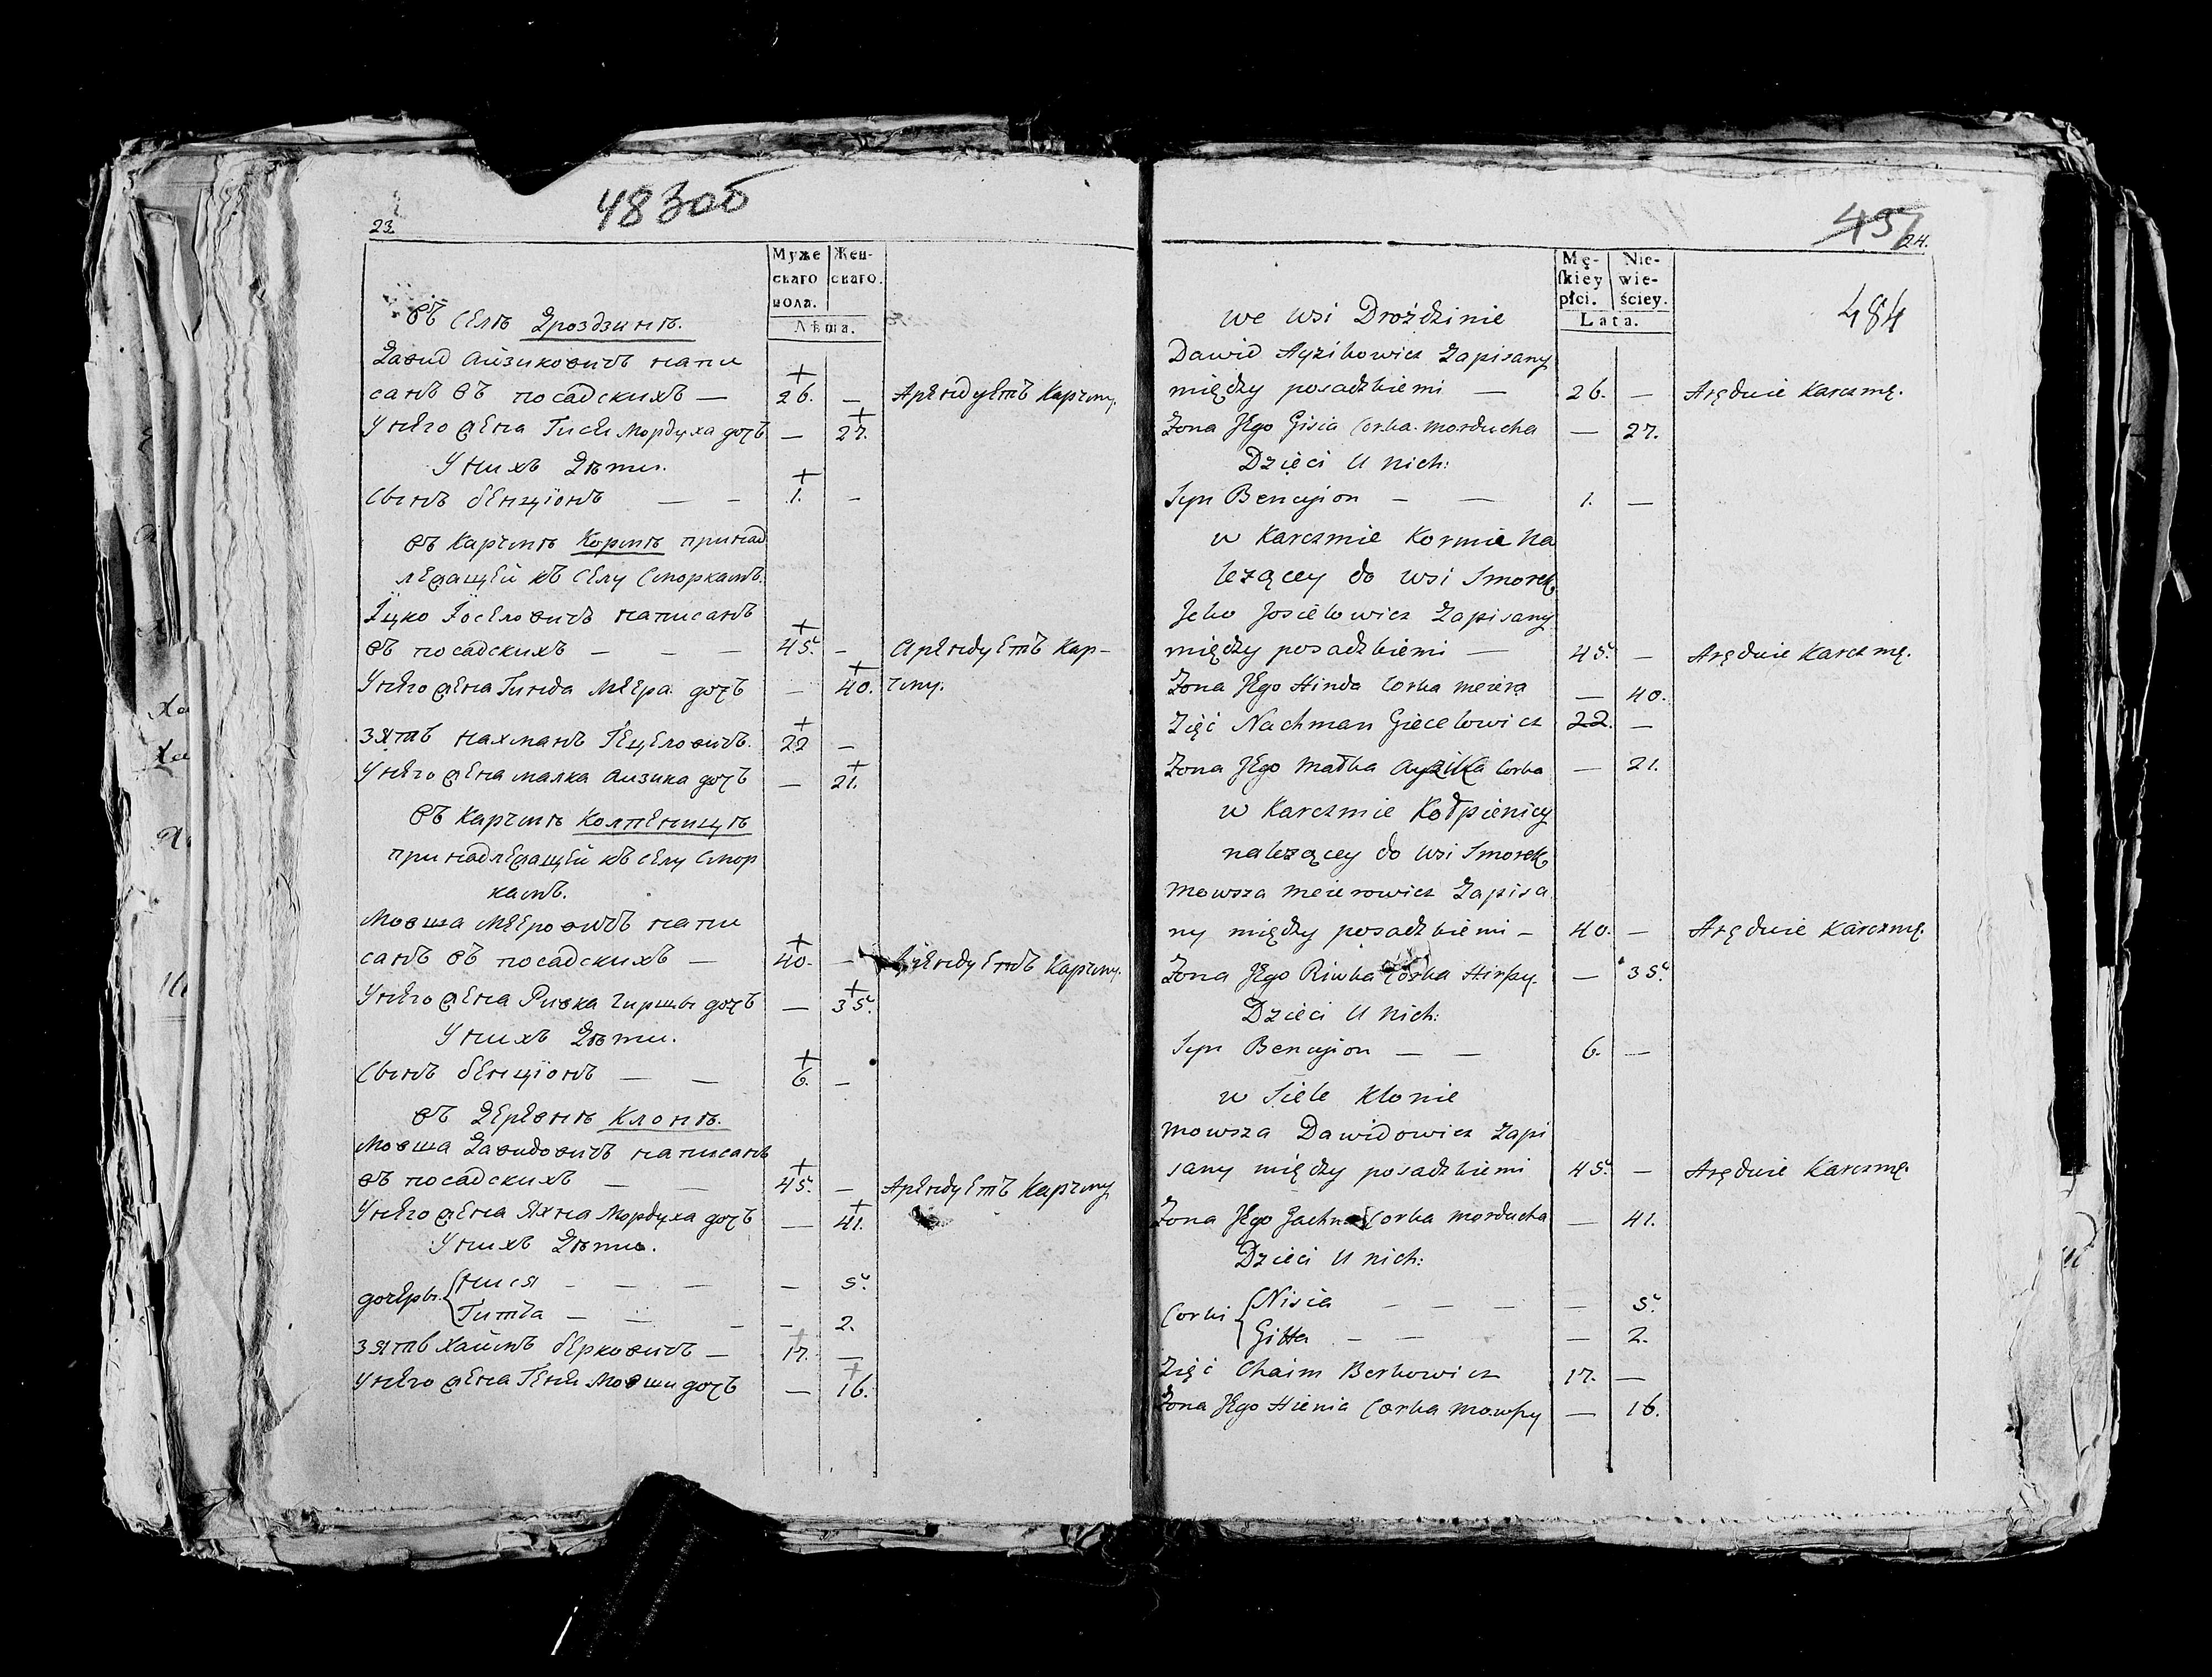 483об
23.
Муже
скаго
пола.
Жен-
скаго.
Лѣта.
въ селѣ Дроздзинѣ.
Давид Айзиковичъ напи
санъ въ посадскихъ — 26. — Арендуетъ Карчму.
У него жена Гися Мордуха дочь — 27.
У нихъ Дѣти.
Сынъ бенціонъ — — 1. —
въ Карчмѣ Кормѣ принад
лежащей къ селу Сморкамъ.
Іцко Іоселовичъ написанъ
въ посадскихъ — — — 45. — Арендуетъ Кар-
У него жена Гинда Меера дочь — 40. чму.
зять нахманъ Гецеловичъ. 22 —
У него жена малка Аизика дочь — 21.
въ Карчмѣ Колпеницѣ
принадлежащей къ селу Смор
камъ.
Мовша Мееровичъ напи
санъ въ посадскихъ — 40. — Арендуетъ Карчму.
У него жена Ривка гиршы дочь — 35.
У нихъ Дѣти.
Сынъ бенціонъ — — 6. —
въ Деревнѣ Клонѣ.
Мовша Давидовичъ написанъ
въ посадскихъ — — 45. — Арендуетъ Карчму
У него жена Яхна Мордуха дочь — 41.
У нихъ Дѣти.
дочеры { Нися — — — — 5.
Гитта — — — — 2.
зять хаимъ берковичъ — 17. —
У него жена Геня Мовши дочь — 16.
457
24.
484
Mę-
skiey
płci.
Nie-
wie-
ściey.
Lata.
we wsi Droździnie
Dawid Ayzikowicz Zapisany
między posadzkiemi — 26. — Aręduie Karczmę.
Zona Jego Gisia Corka morducha — 27.
Dzięci U nich:
Syn Bencyion — — 1. —
w Karczmie Kormie Na
leżącey do wsi Smorek
Jcko Josielowicz Zapisany
między posadzkiemi — 45. — Aręduie Karczmę.
Zona Jego Hinda Corka meiera — 40.
Zięć Nachman Giecelowicz 22. —
Zona Jego Małka Ayzika Corka — 21.
w Karczmie Kołpienicy
należącey do wsi Smorek
Mowsza meierowicz Zapisa
ny między posadzkiemi — 40. — Aręduie Karczmę.
Zona Jego Riwka Corka Hirszy. — 35.
Dzieci U nich:
Syn Bencyion — — 6. —
w Siele Klonie
Mowsza Dawidowicz Zapi
sany między posadzkiemi 45. — Aręduie Karczmę.
Zona Jego Jachna Corka Morducha — 41.
Dzieci U nich:
Corki { Nisia — — — — 5.
Gitta — — — 2.
Zięć Chaim Berkowicz 17. —
Zona Jego Hienia Corka Mowszy — 16.